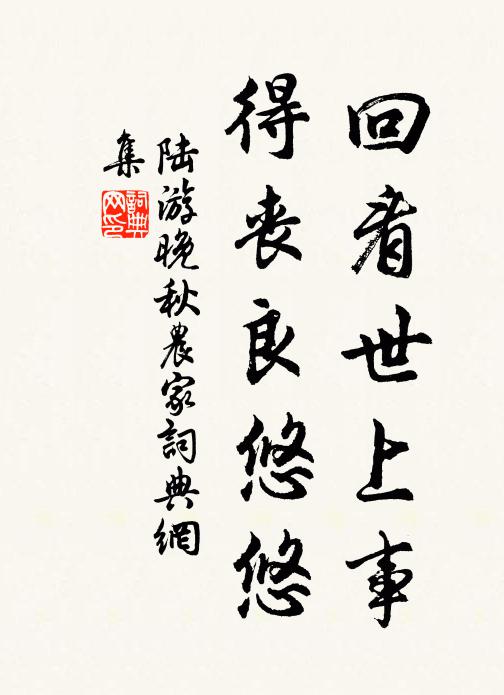 回看世上事
得丧良悠悠
陆游晚秋農家詞典網
集
詞典
网印